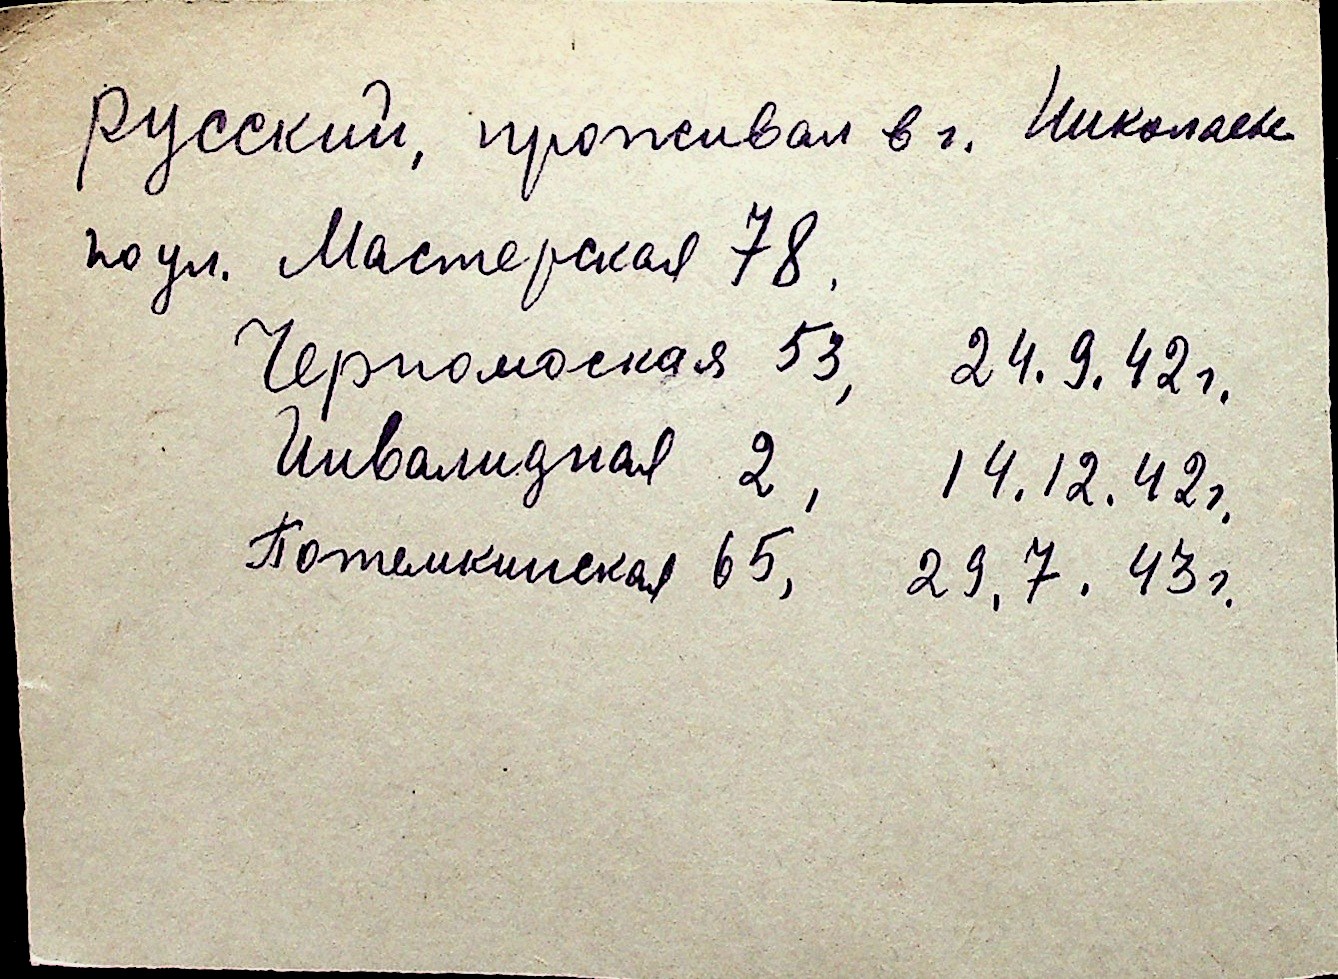 русский, проживал в г. Николаеве
по ул. Мастерская 78,
Черномоская 53, 24.9.42г.
Инвалидная 2, 14.12.42г.
Потемкинская 65, 29.7.43г.